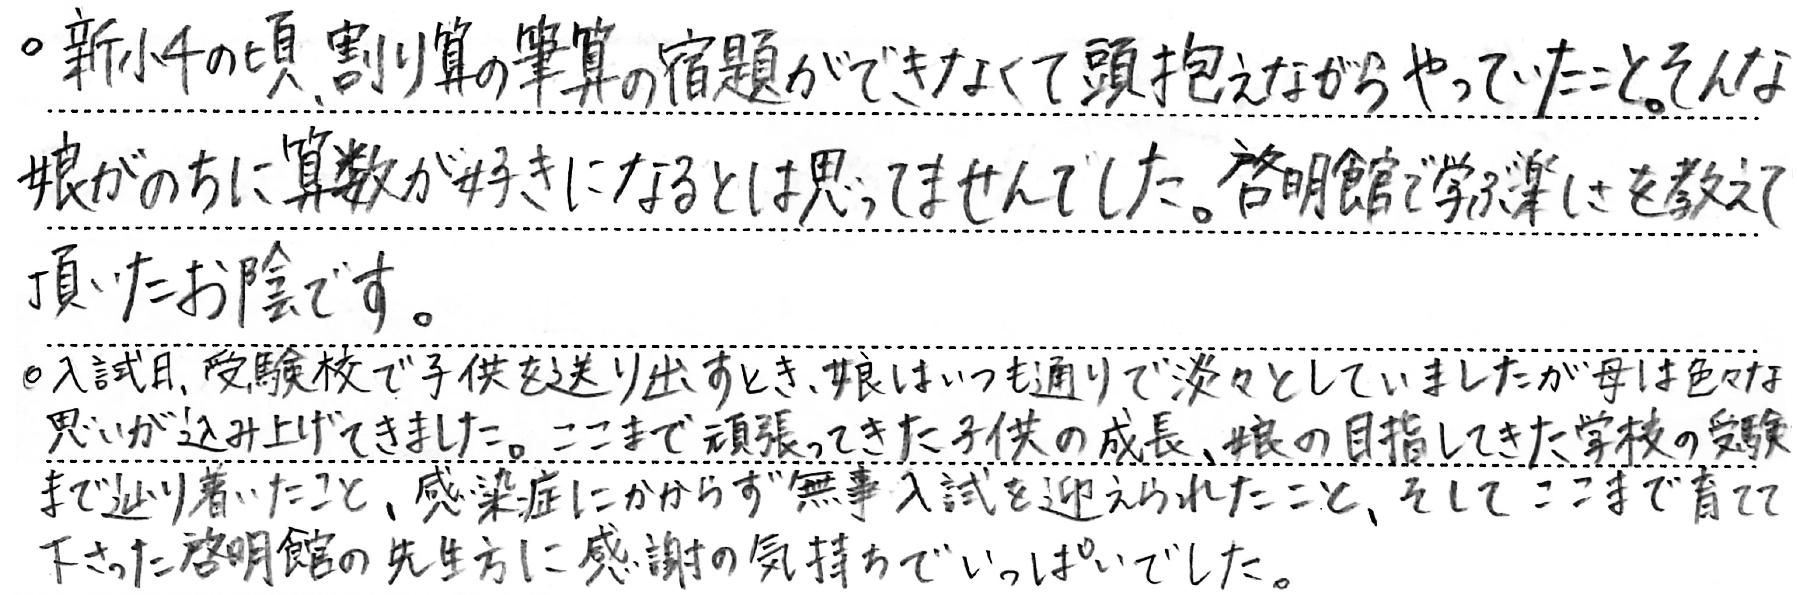 ○新小4の頃、割り算の筆算の宿題ができなくて頭抱えながらやっていたこと。そんな
娘がのちに算数が好きになるとは思ってませんでした。啓明館で学ぶ楽しさを教えて
頂いたお陰です。
○入試日、受験校で子供を送り出すとき、娘はいつも通りで淡々としていましたが母は色々な
思いが込み上げてきました。ここまで頑張ってきた子供の成長、娘の目指してきた学校の受験
まで辿り着いたこと、感染症にかからず無事入試を迎えられたこと、そしてここまで育てて
下さった啓明館の先生方に感謝の気持ちでいっぱいでした。